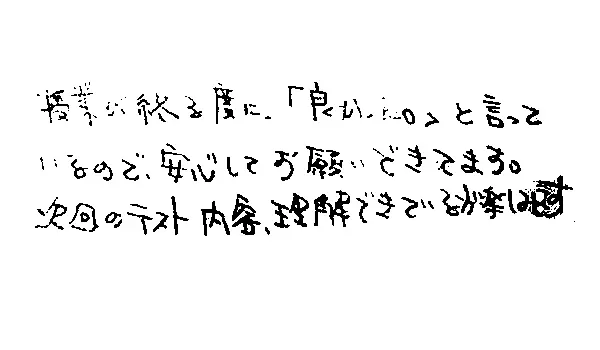 授業が終る度に、「良かった。」と言って
いるので、安心してお願いできてます。
次回のテスト内容、理解できているか楽しみです